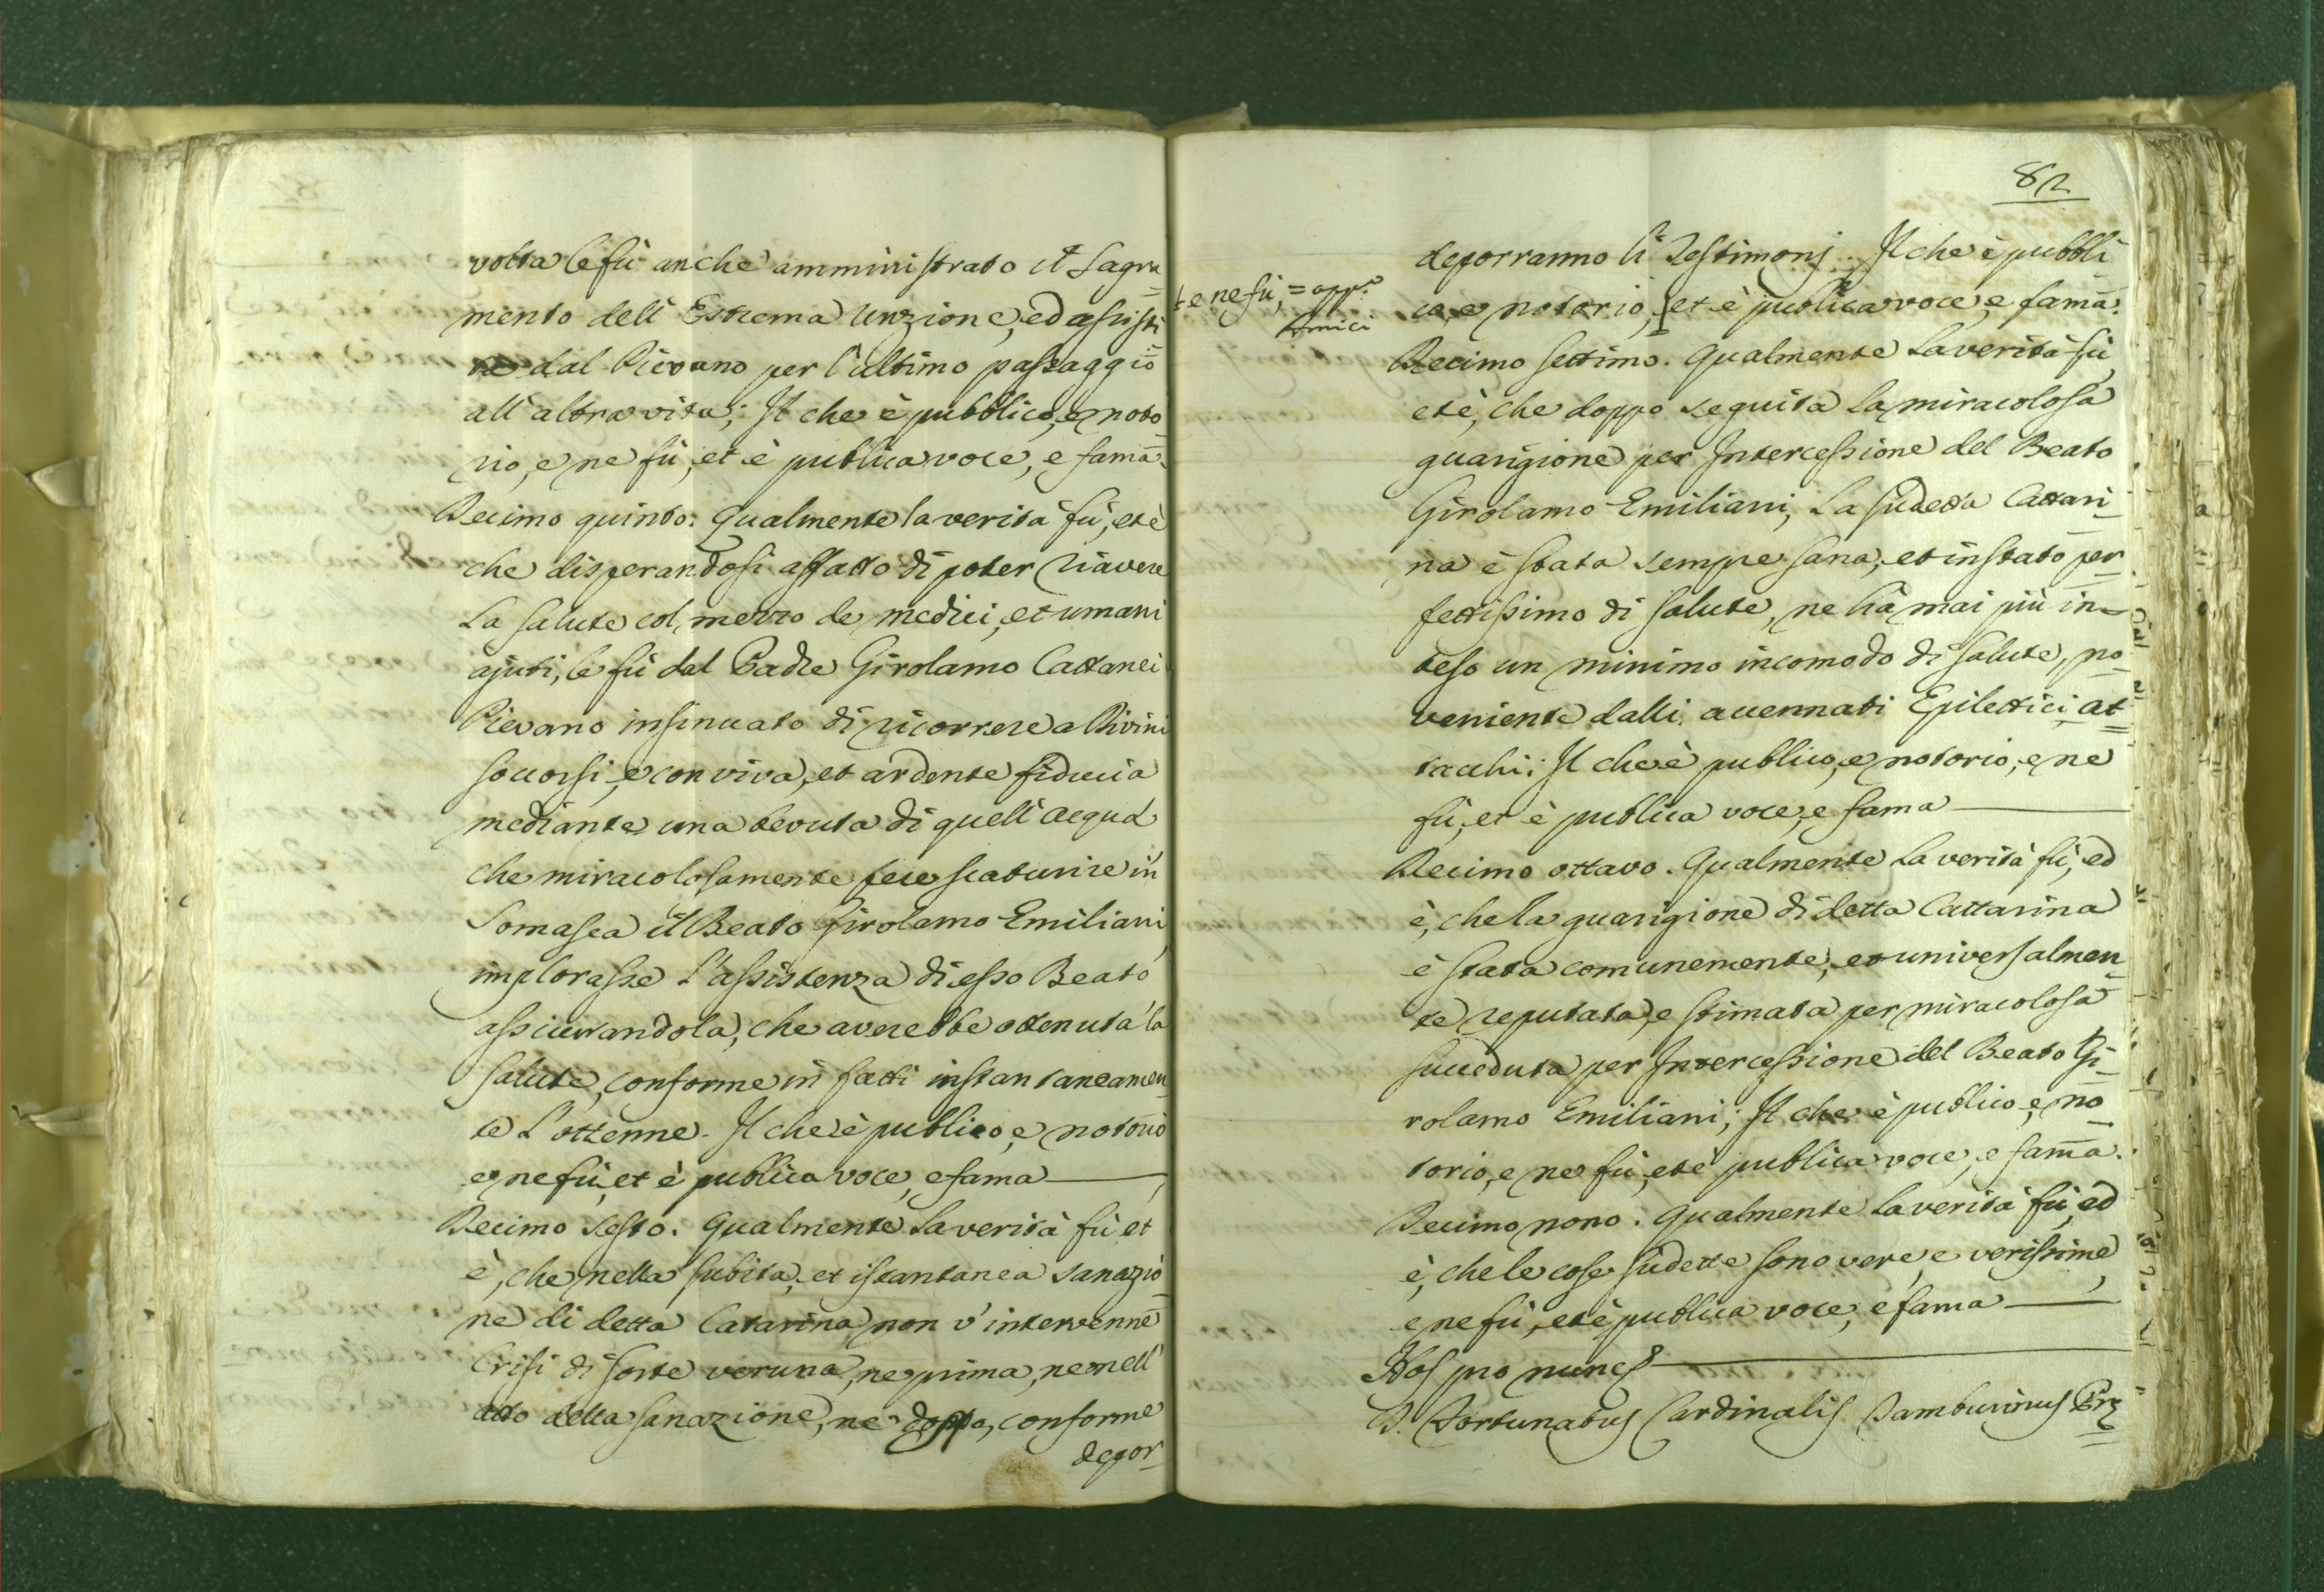 volta le fù anche amministrato il Sagra=
mento dell' Estrema Unzione, ed assisti=
ta dal Pievano per l'ultimo passaggio
all' altra vita; Il che è pubblico, e noto=
rio, e ne fù, et è publica voce, e fama.
Decimo quinto: Qualmente la verità fù, et è
che disperandosi affatto di poter riavere
La salute col mezzo de medici, et umani
ajuti, le fù dal Padre Girolamo Cattanei
Pievano insinuato di ricorrere a Divini
soccorsi, e con viva, et ardente fiducia
mediante una bevuta di quell' acqua
che miracolosamente fece scaturire in
Somasca il Beato Girolamo Emiliani,
implorasse l'assistenza di esso Beato
assicurandola, che averebbe ottenuta la
salute, conforme in fatti instantaneamen=
te l'ottenne. Il che è publico, e notorio
e ne fù, et è publica voce, e fama
Decimo sesto. Qualmente la verità fù et
è, che nella subita, et istantanea sanazio=
ne di detta Catarina non v'intervenne
Crisi di sorte veruna, ne prima, ne nell'
atto della sanazione, ne doppo, conforme
depor=
82
deporranno li Testimonj. Il che è pubbli=
co, e notorio, et è publica voce, e fama.
+ e ne fù, = app.º
Amici
Decimo settimo. Qualmente la verità fù,
et è, che doppo seguita la miracolosa
guarigione per Intercessione del Beato
Girolamo Emiliani, La sudetta Cattari=
na è stata sempre sana, et in stato per=
fettissimo di salute, ne hà mai più in=
teso un minimo incomodo di salute, pro=
veniente dalli accennati Epilettici at=
tacchi; Il che è publico, e notorio, e ne
fù, et è publica voce, e fama
Decimo ottavo. Qualmente la verità fù, ed
è, che la guarigione di detta Cattarina
è stata comunemente, et universalmen=
te reputata, e stimata per miracolosa
succeduta per Intercessione del Beato Gi=
rolamo Emiliani; Il che è publico, e no=
torio, e ne fù, et è publica voce, e fama.
Decimo nono. Qualmente la verità fù, ed
è, che le cose sudette sono vere, e verissime,
e ne fù, et è publica voce, e fama
Hos pro nunc
D. Fortunatus Cardinalis Tamburinus